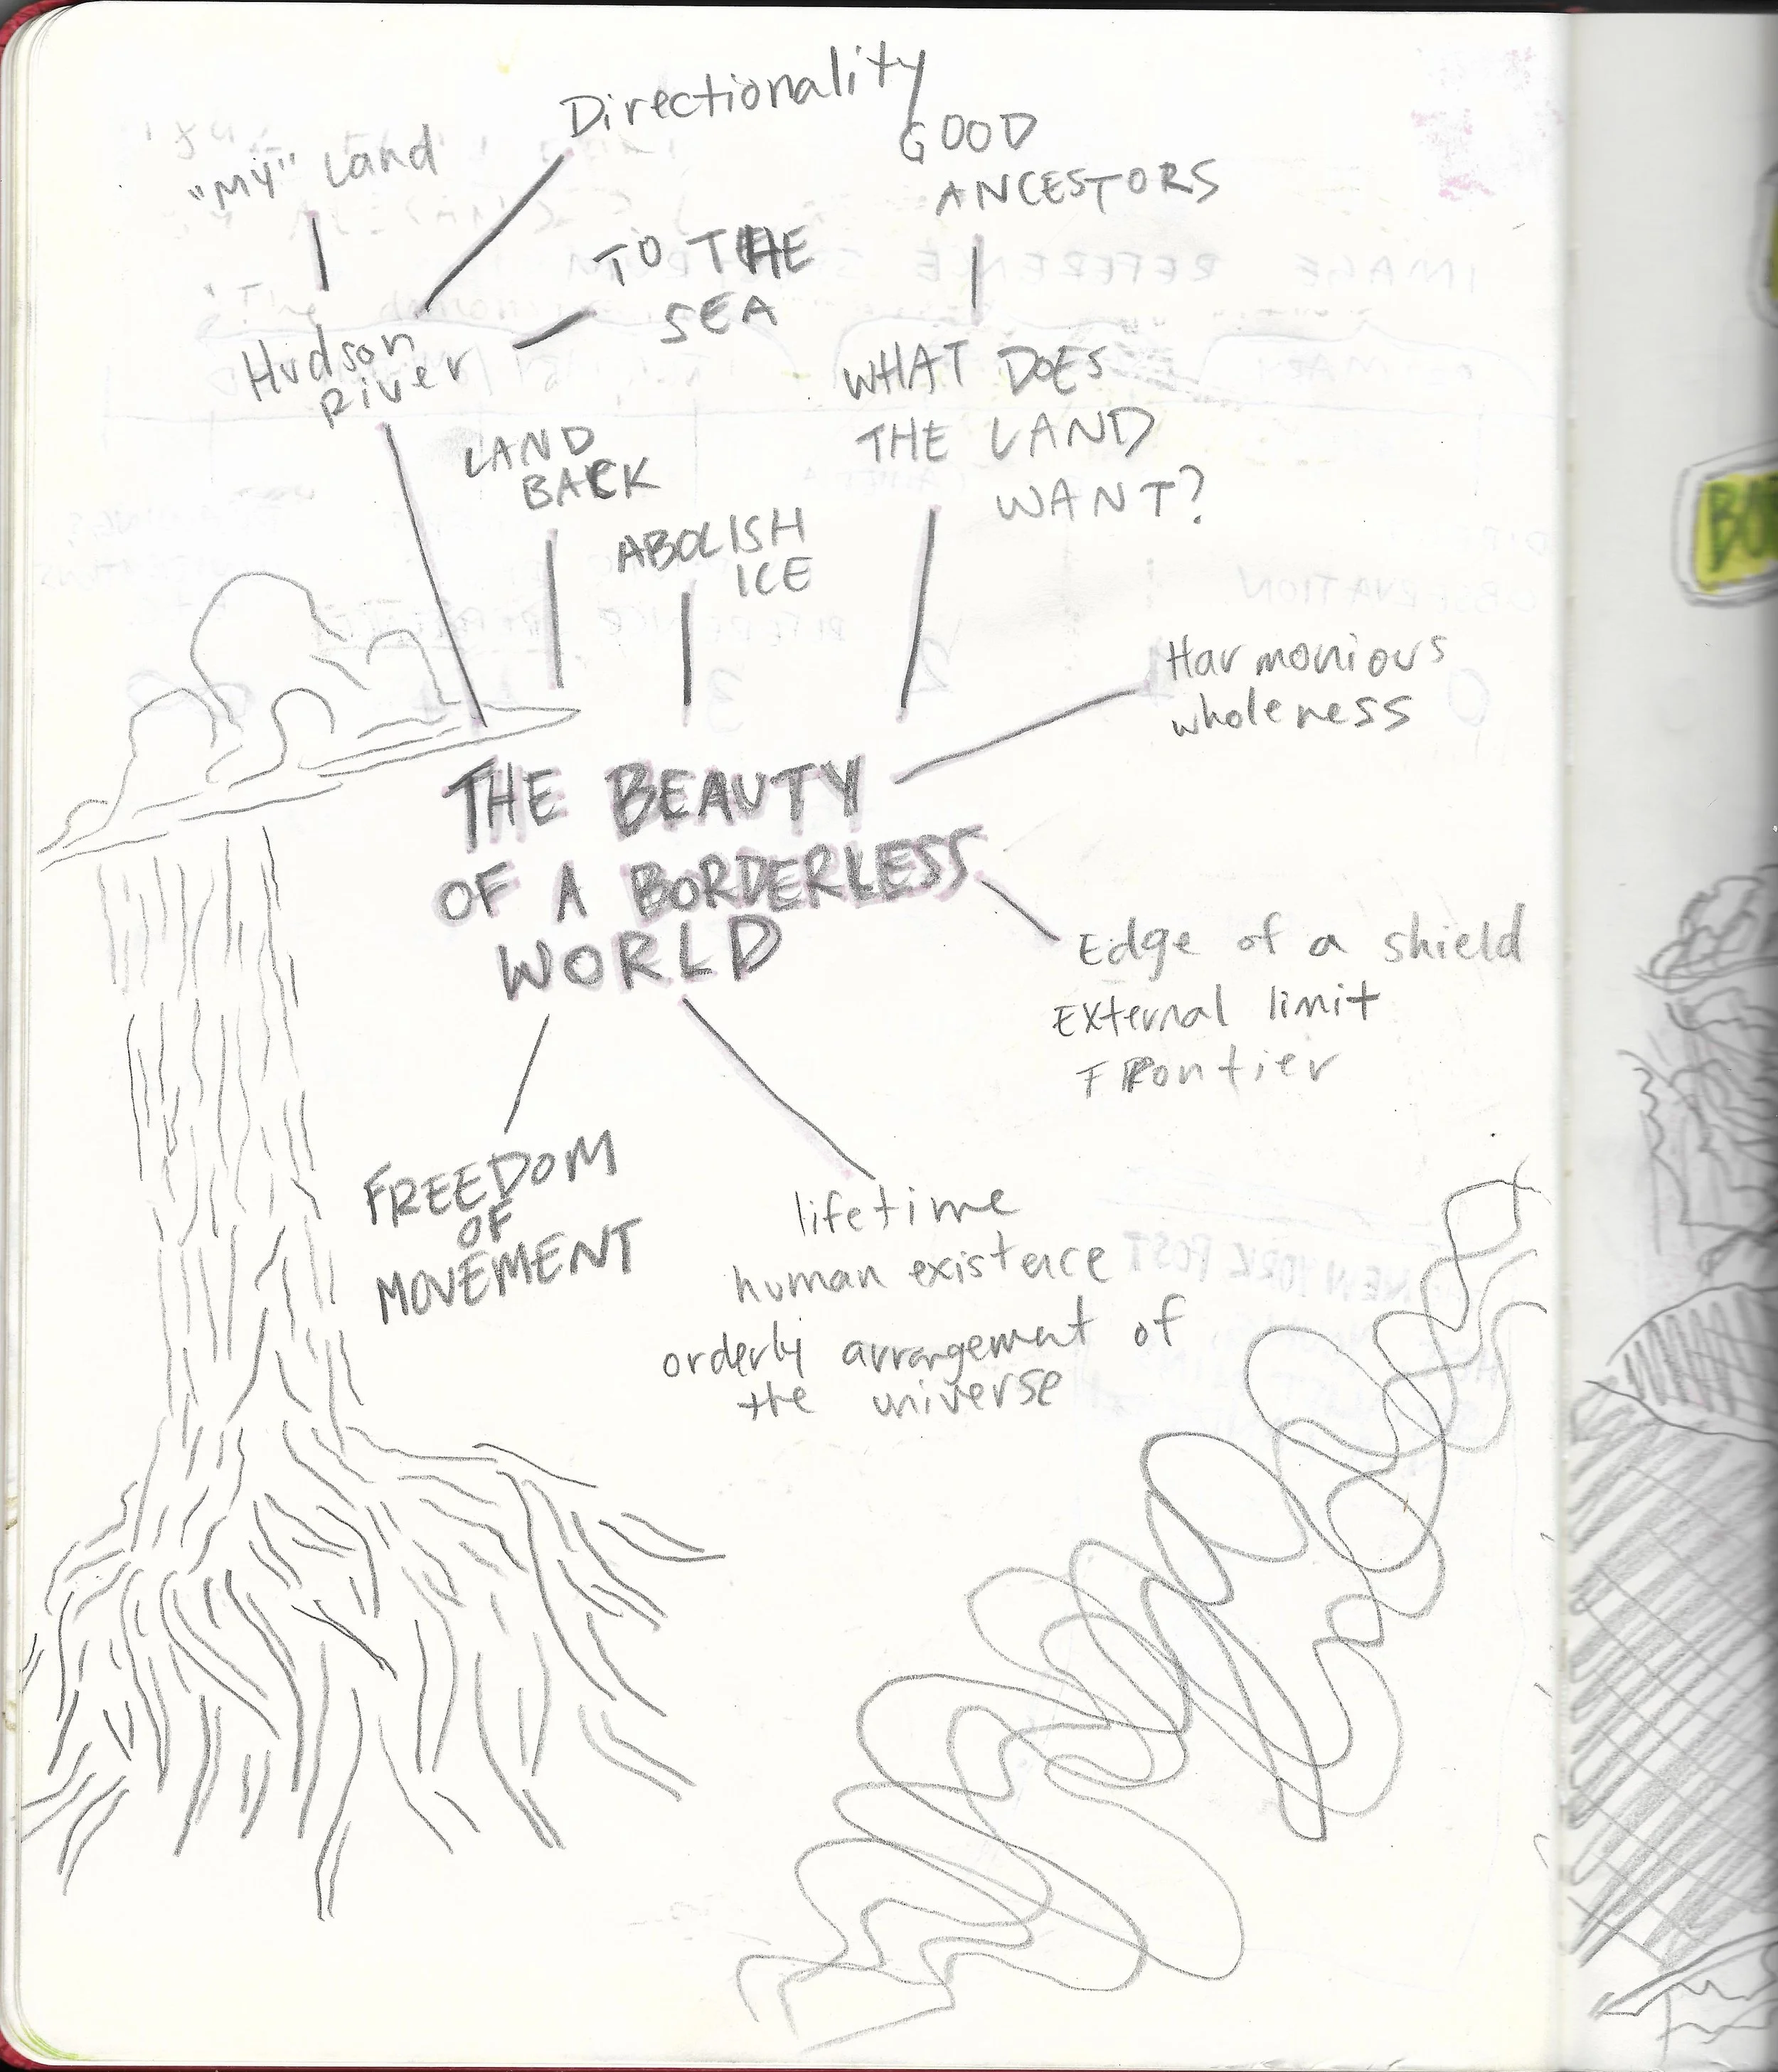 Directionality
"MY" Land
GOOD
ANCESTORS
TO THE
SEA
Hudson
River
WHAT DOES
THE LAND
WANT?
LAND
BACK
ABOLISH
ICE
Harmonious
wholeness
THE BEAUTY
OF A BORDERLESS
WORLD
Edge of a shield
External limit
FRontier
FREEDOM
OF
MOVEMENT
lifetime
human existence
orderly arrangement of
the universe
NEW YORK POST
IMAGE REFERENCE